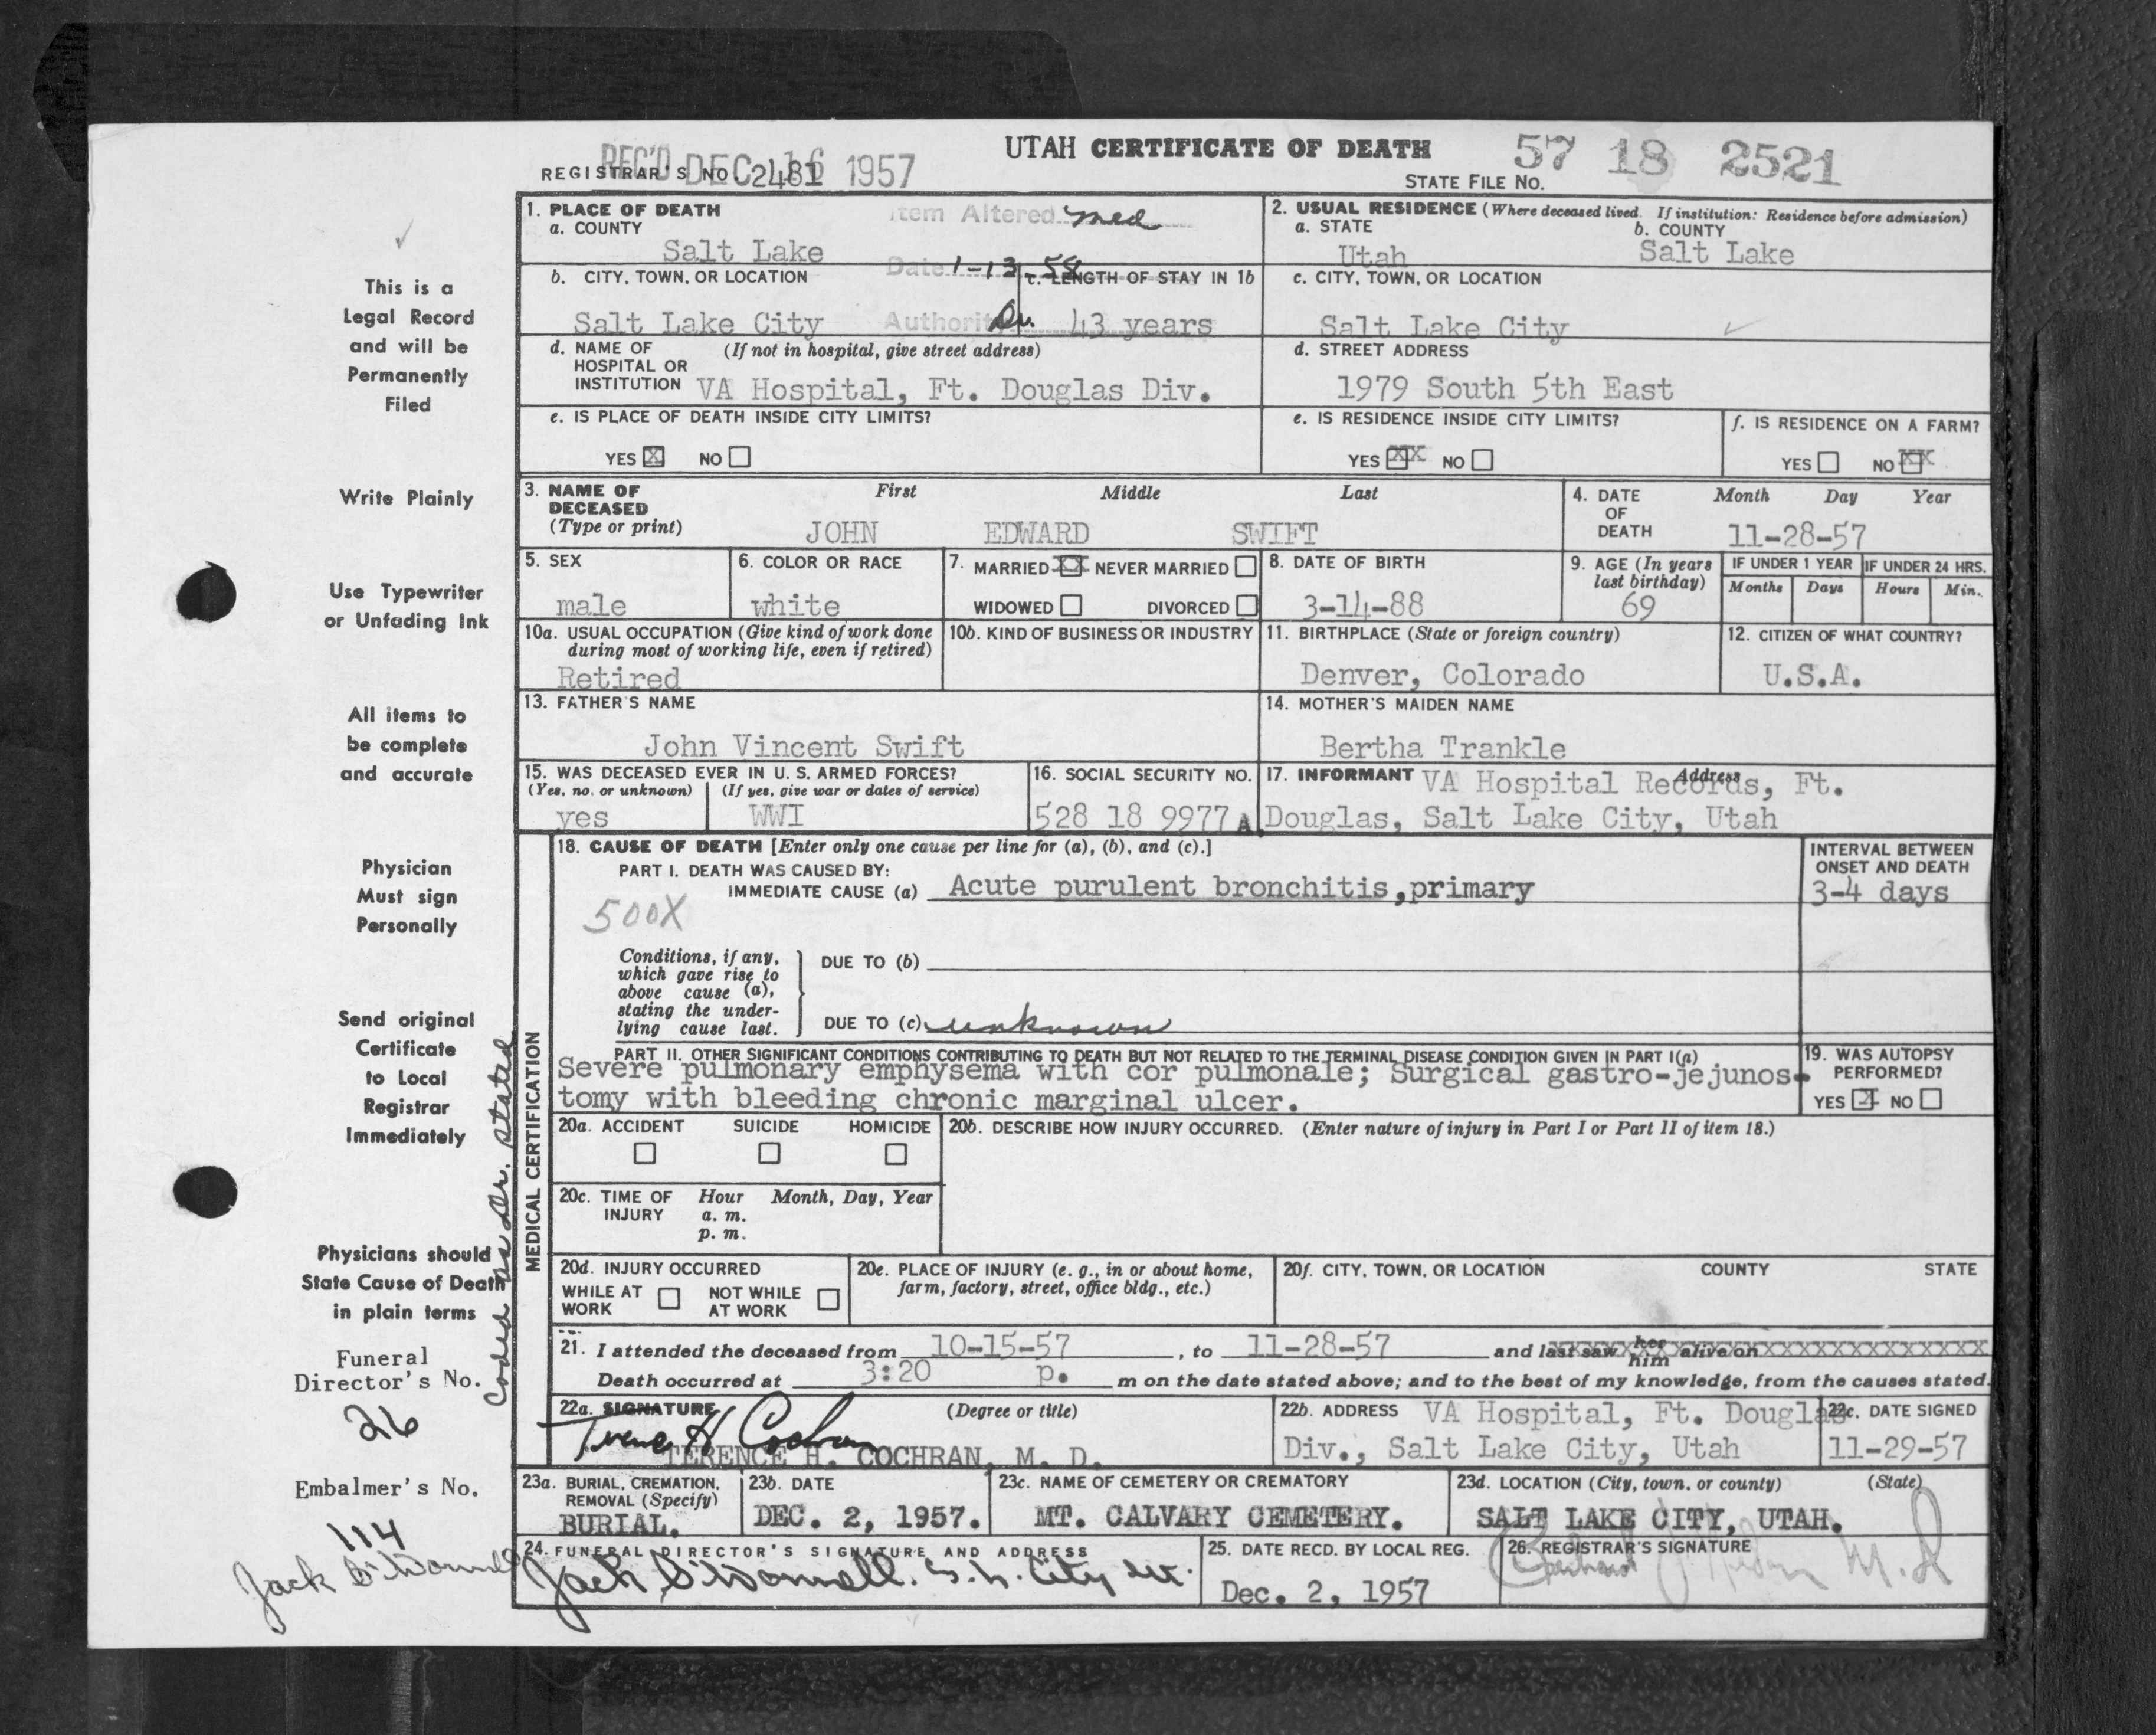 UTAH CERTIFICATE OF DEATH
57 18 2521
REC'D DEC 16 1957
REGISTRAR'S NO. 2481
STATE FILE NO.
1. PLACE OF DEATH
a. COUNTY
Salt Lake
Item Altered med
Date 1-13-58
Authority Dr.
b. CITY, TOWN, OR LOCATION
Salt Lake City
c. LENGTH OF STAY IN 1b
43 years
d. NAME OF (If not in hospital, give street address)
HOSPITAL OR
INSTITUTION VA Hospital, Ft. Douglas Div.
e. IS PLACE OF DEATH INSIDE CITY LIMITS?
YES X NO
2. USUAL RESIDENCE (Where deceased lived. If institution: Residence before admission)
a. STATE b. COUNTY
Utah Salt Lake
c. CITY, TOWN, OR LOCATION
Salt Lake City
d. STREET ADDRESS
1979 South 5th East
e. IS RESIDENCE INSIDE CITY LIMITS?
YES XX NO
f. IS RESIDENCE ON A FARM?
YES NO XX
3. NAME OF DECEASED
(Type or print)
First Middle Last
JOHN EDWARD SWIFT
4. DATE OF DEATH
Month Day Year
11-28-57
5. SEX
male
6. COLOR OR RACE
white
7. MARRIED XX NEVER MARRIED
WIDOWED DIVORCED
8. DATE OF BIRTH
3-14-88
9. AGE (In years last birthday)
69
IF UNDER 1 YEAR IF UNDER 24 HRS.
Months Days Hours Min.
10a. USUAL OCCUPATION (Give kind of work done
during most of working life, even if retired)
Retired
10b. KIND OF BUSINESS OR INDUSTRY
11. BIRTHPLACE (State or foreign country)
Denver, Colorado
12. CITIZEN OF WHAT COUNTRY?
U.S.A.
13. FATHER'S NAME
John Vincent Swift
14. MOTHER'S MAIDEN NAME
Bertha Trankle
15. WAS DECEASED EVER IN U. S. ARMED FORCES?
(Yes, no, or unknown) (If yes, give war or dates of service)
yes WWI
16. SOCIAL SECURITY NO.
528 18 9977 A
17. INFORMANT Address
VA Hospital Records, Ft.
Douglas, Salt Lake City, Utah
MEDICAL CERTIFICATION
18. CAUSE OF DEATH [Enter only one cause per line for (a), (b), and (c).]
PART I. DEATH WAS CAUSED BY:
IMMEDIATE CAUSE (a) Acute purulent bronchitis, primary
500X
INTERVAL BETWEEN
ONSET AND DEATH
3-4 days
Conditions, if any,
which gave rise to
above cause (a),
stating the under-
lying cause last.
DUE TO (b)
DUE TO (c) unknown
PART II. OTHER SIGNIFICANT CONDITIONS CONTRIBUTING TO DEATH BUT NOT RELATED TO THE TERMINAL DISEASE CONDITION GIVEN IN PART I(a)
Severe pulmonary emphysema with cor pulmonale; Surgical gastro-jejunos-
tomy with bleeding chronic marginal ulcer.
19. WAS AUTOPSY
PERFORMED?
YES X NO
20a. ACCIDENT SUICIDE HOMICIDE
20b. DESCRIBE HOW INJURY OCCURRED. (Enter nature of injury in Part I or Part II of item 18.)
20c. TIME OF INJURY
Hour Month, Day, Year
a. m.
p. m.
20d. INJURY OCCURRED
WHILE AT WORK NOT WHILE AT WORK
20e. PLACE OF INJURY (e. g., in or about home,
farm, factory, street, office bldg., etc.)
20f. CITY, TOWN, OR LOCATION COUNTY STATE
21. I attended the deceased from 10-15-57, to 11-28-57 and last saw her him alive on xxxxxxxxxxxxxxxxxxxx
Death occurred at 3:20 p. m on the date stated above; and to the best of my knowledge, from the causes stated.
22a. SIGNATURE (Degree or title)
Terence H Cochran
TERENCE H. COCHRAN, M. D.
22b. ADDRESS VA Hospital, Ft. Douglas
Div., Salt Lake City, Utah
22c. DATE SIGNED
11-29-57
23a. BURIAL, CREMATION,
REMOVAL (Specify)
BURIAL.
23b. DATE
DEC. 2, 1957.
23c. NAME OF CEMETERY OR CREMATORY
MT. CALVARY CEMETERY.
23d. LOCATION (City, town, or county) (State)
SALT LAKE CITY, UTAH.
24. FUNERAL DIRECTOR'S SIGNATURE AND ADDRESS
Jack O'Donnell. S. L. City Ut.
25. DATE RECD. BY LOCAL REG.
Dec. 2, 1957
26. REGISTRAR'S SIGNATURE
M.D
This is a
Legal Record
and will be
Permanently
Filed
Write Plainly
Use Typewriter
or Unfading Ink
All items to
be complete
and accurate
Physician
Must sign
Personally
Send original
Certificate
to Local
Registrar
Immediately
Physicians should
State Cause of Death
in plain terms
Coded as Dr. stated
Funeral
Director's No.
26
Embalmer's No.
114
Jack O'Donnell